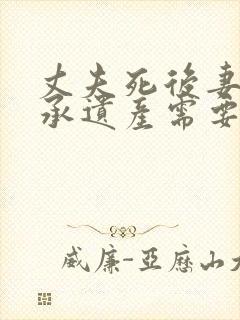 丈夫死後妻
承遺產需要
威廉-亞歷山大